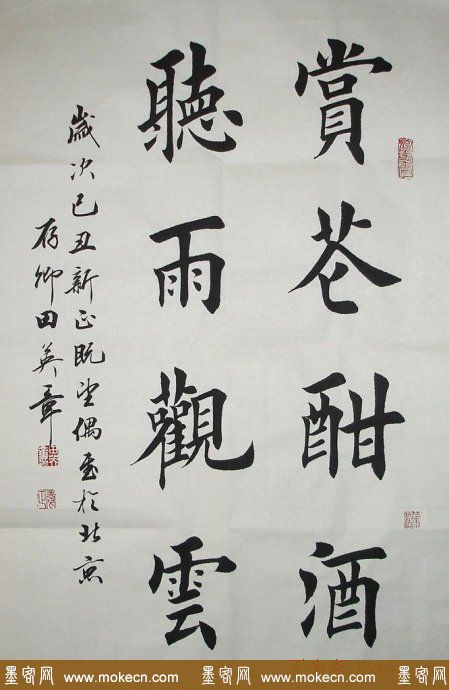 賞花酣酒
聽雨觀雲
歲次己丑新正既望偶書於北京
存卿田英章
墨客网 www.mokecn.com 墨客网 www.mokecn.com 墨客网